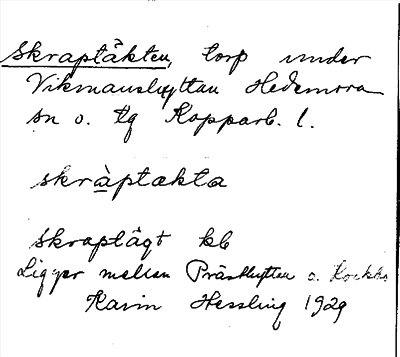 Skraptäkten, torp under
Vikmanshyttan Hedemora
sn o. tg Kopparb. l.
skràptækta
Skraptägt kb
Ligger mellan Prästhyttan o.
Karin Hessling 1929